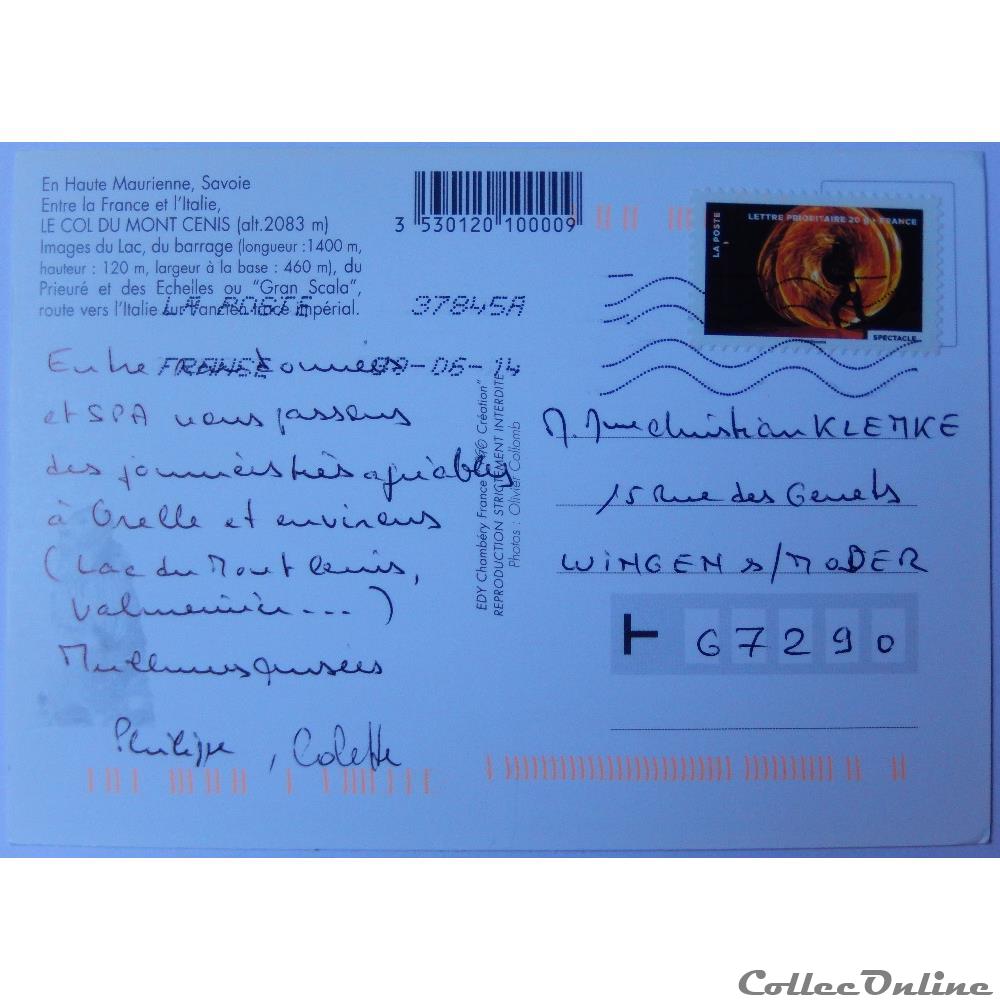 En Haute Maurienne, Savoie
Entre la France et l'Italie,
LE COL DU MONT CENIS (alt.2083 m)
Images du Lac, du barrage (longueur :1400 m,
hauteur : 120 m, largeur à la base : 460 m), du
Prieuré et des Echelles ou "Gran Scala",
route vers l'Italie sur l'ancien tracé impérial.
3 530120 100009
LA POSTE 37845A
FRANCE -06-14
LA POSTE
LETTRE PRIORITAIRE 20 g - FRANCE
SPECTACLE
Entre
et SPA nous passons
des journées très agréables
à Orelle et environs
(Lac du Mont Cenis,
Valmeinier ...)
Meilleures pensées
Philippe, Colette
EDY Chambéry France Création"
REPRODUCTION STRICTEMENT INTERDITE
Photos : Olivier Collomb
M. Mme Christian KLEMKE
15 Rue des Genets
WINGEN s/MODER
67290
CollecOnline